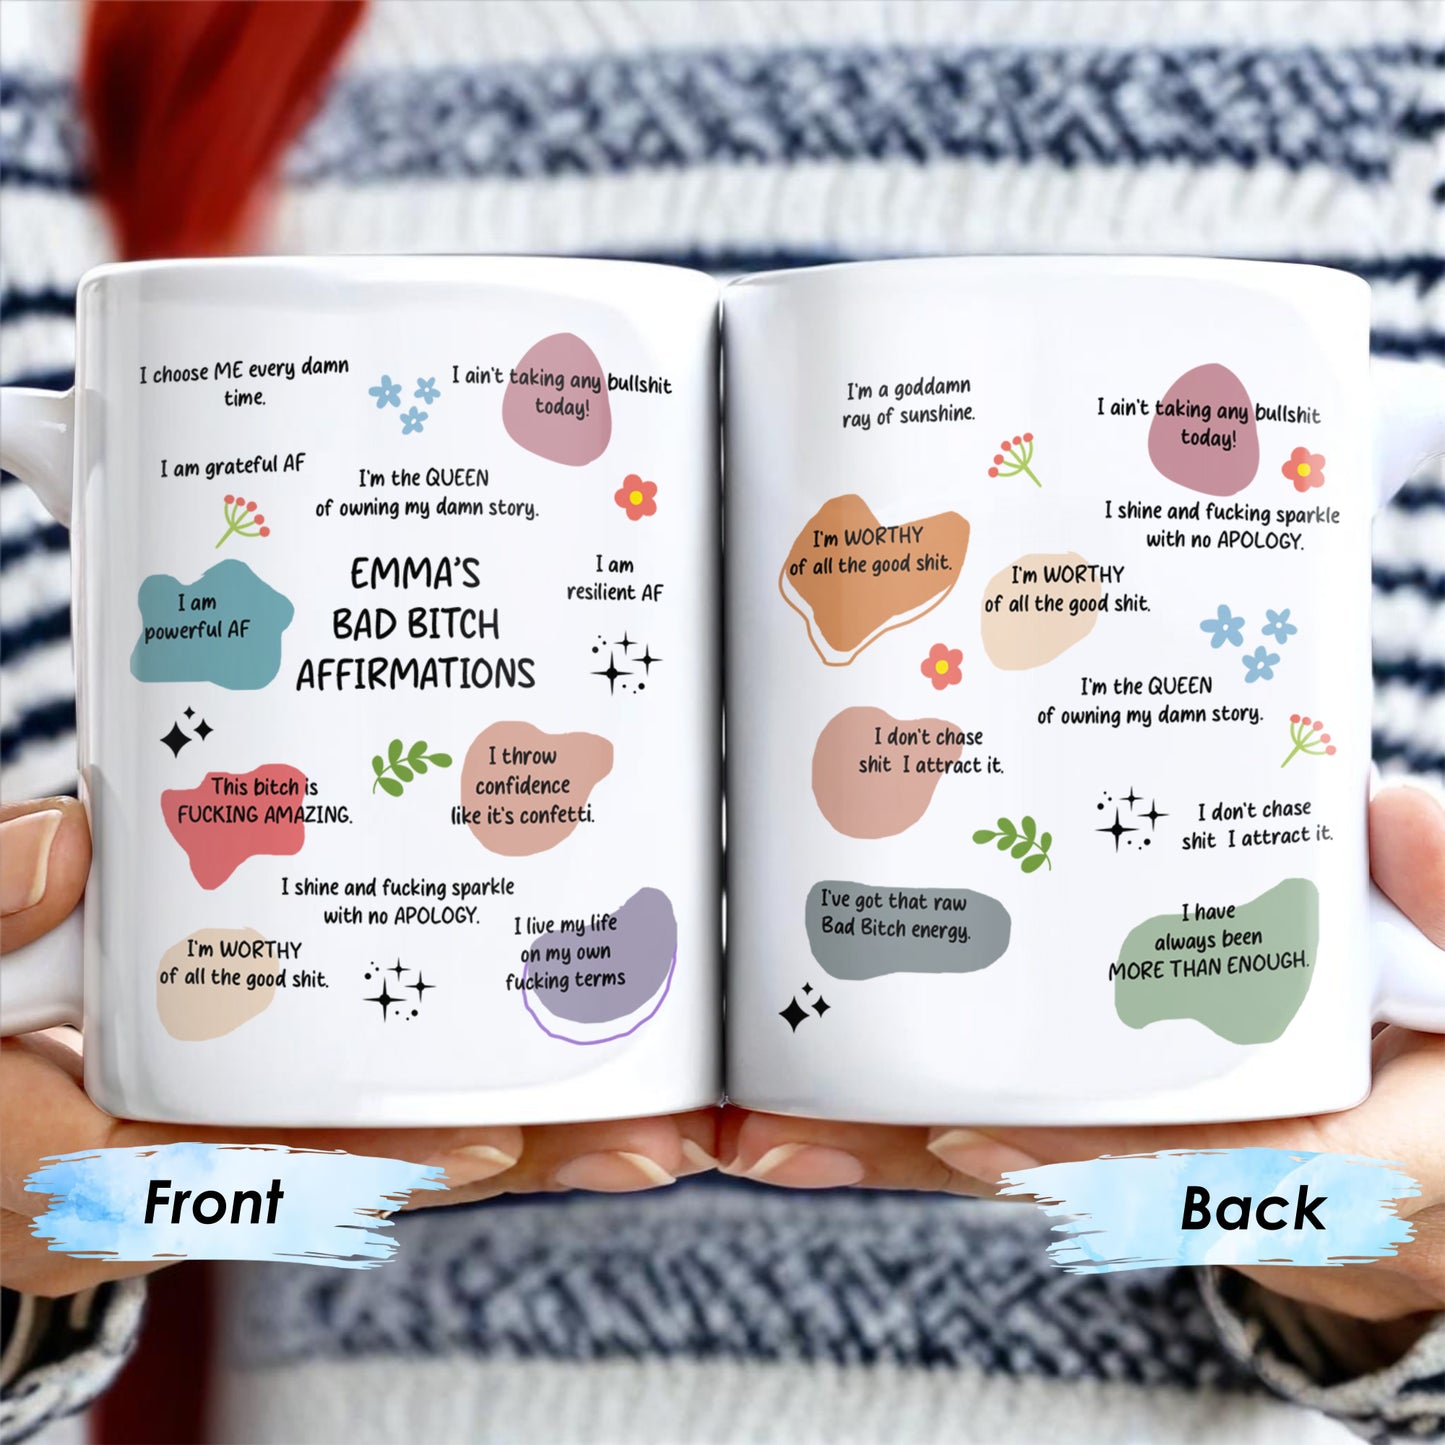 I choose ME every damn
time.
I ain't taking any bullshit
today!
I am grateful AF
I'm the QUEEN
of owning my damn story.
EMMA'S
BAD BITCH
AFFIRMATIONS
I am
resilient AF
I am
powerful AF
This bitch is
FUCKING AMAZING.
I throw
confidence
like it's confetti.
I shine and fucking sparkle
with no APOLOGY.
I'm WORTHY
of all the good shit.
I live my life
on my own
fucking terms
Front
I'm a goddamn
ray of sunshine.
I ain't taking any bullshit
today!
I shine and fucking sparkle
with no APOLOGY.
I'm WORTHY
of all the good shit.
I'm WORTHY
of all the good shit.
I'm the QUEEN
of owning my damn story.
I don't chase
shit I attract it.
I don't chase
shit I attract it.
I've got that raw
Bad Bitch energy.
I have
always been
MORE THAN ENOUGH.
Back